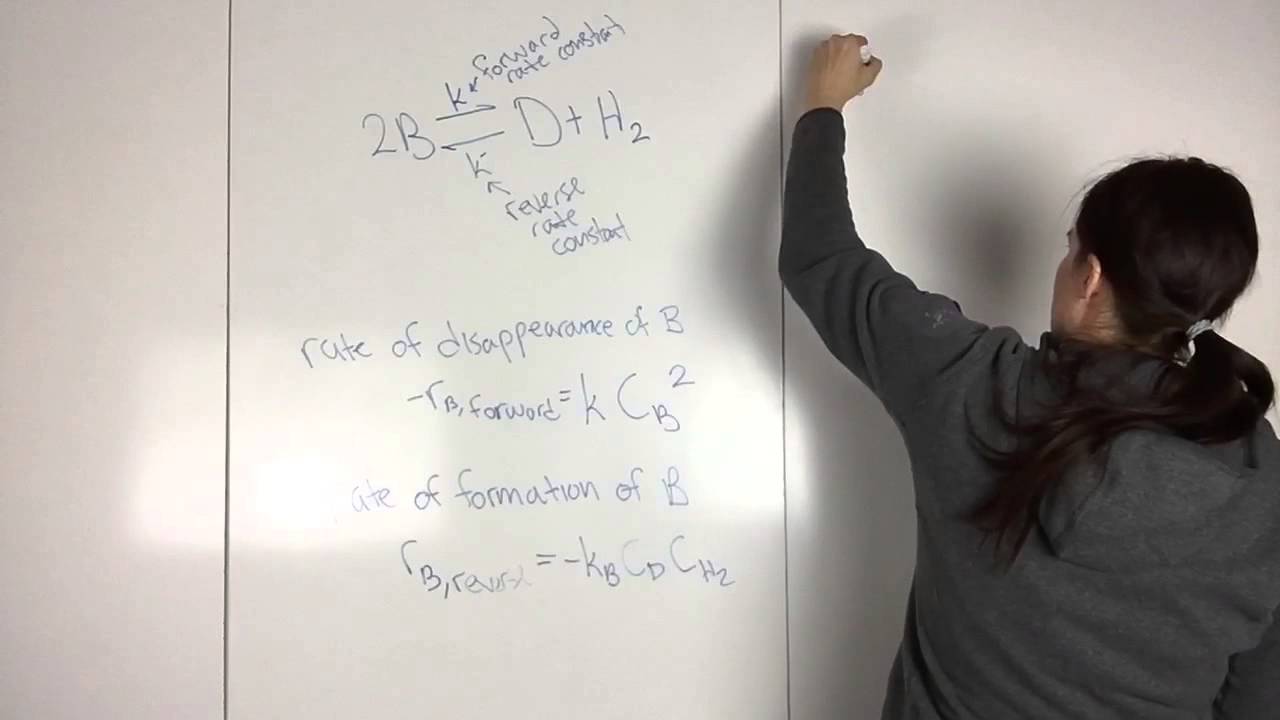 forward
rate constant
k
2B ⇌ D + H₂
k⁻
reverse
rate
constant
rate of disappearance of B
-r_B,forward = k C_B²
ate of formation of B
r_B, = -k_B C_D C_H₂